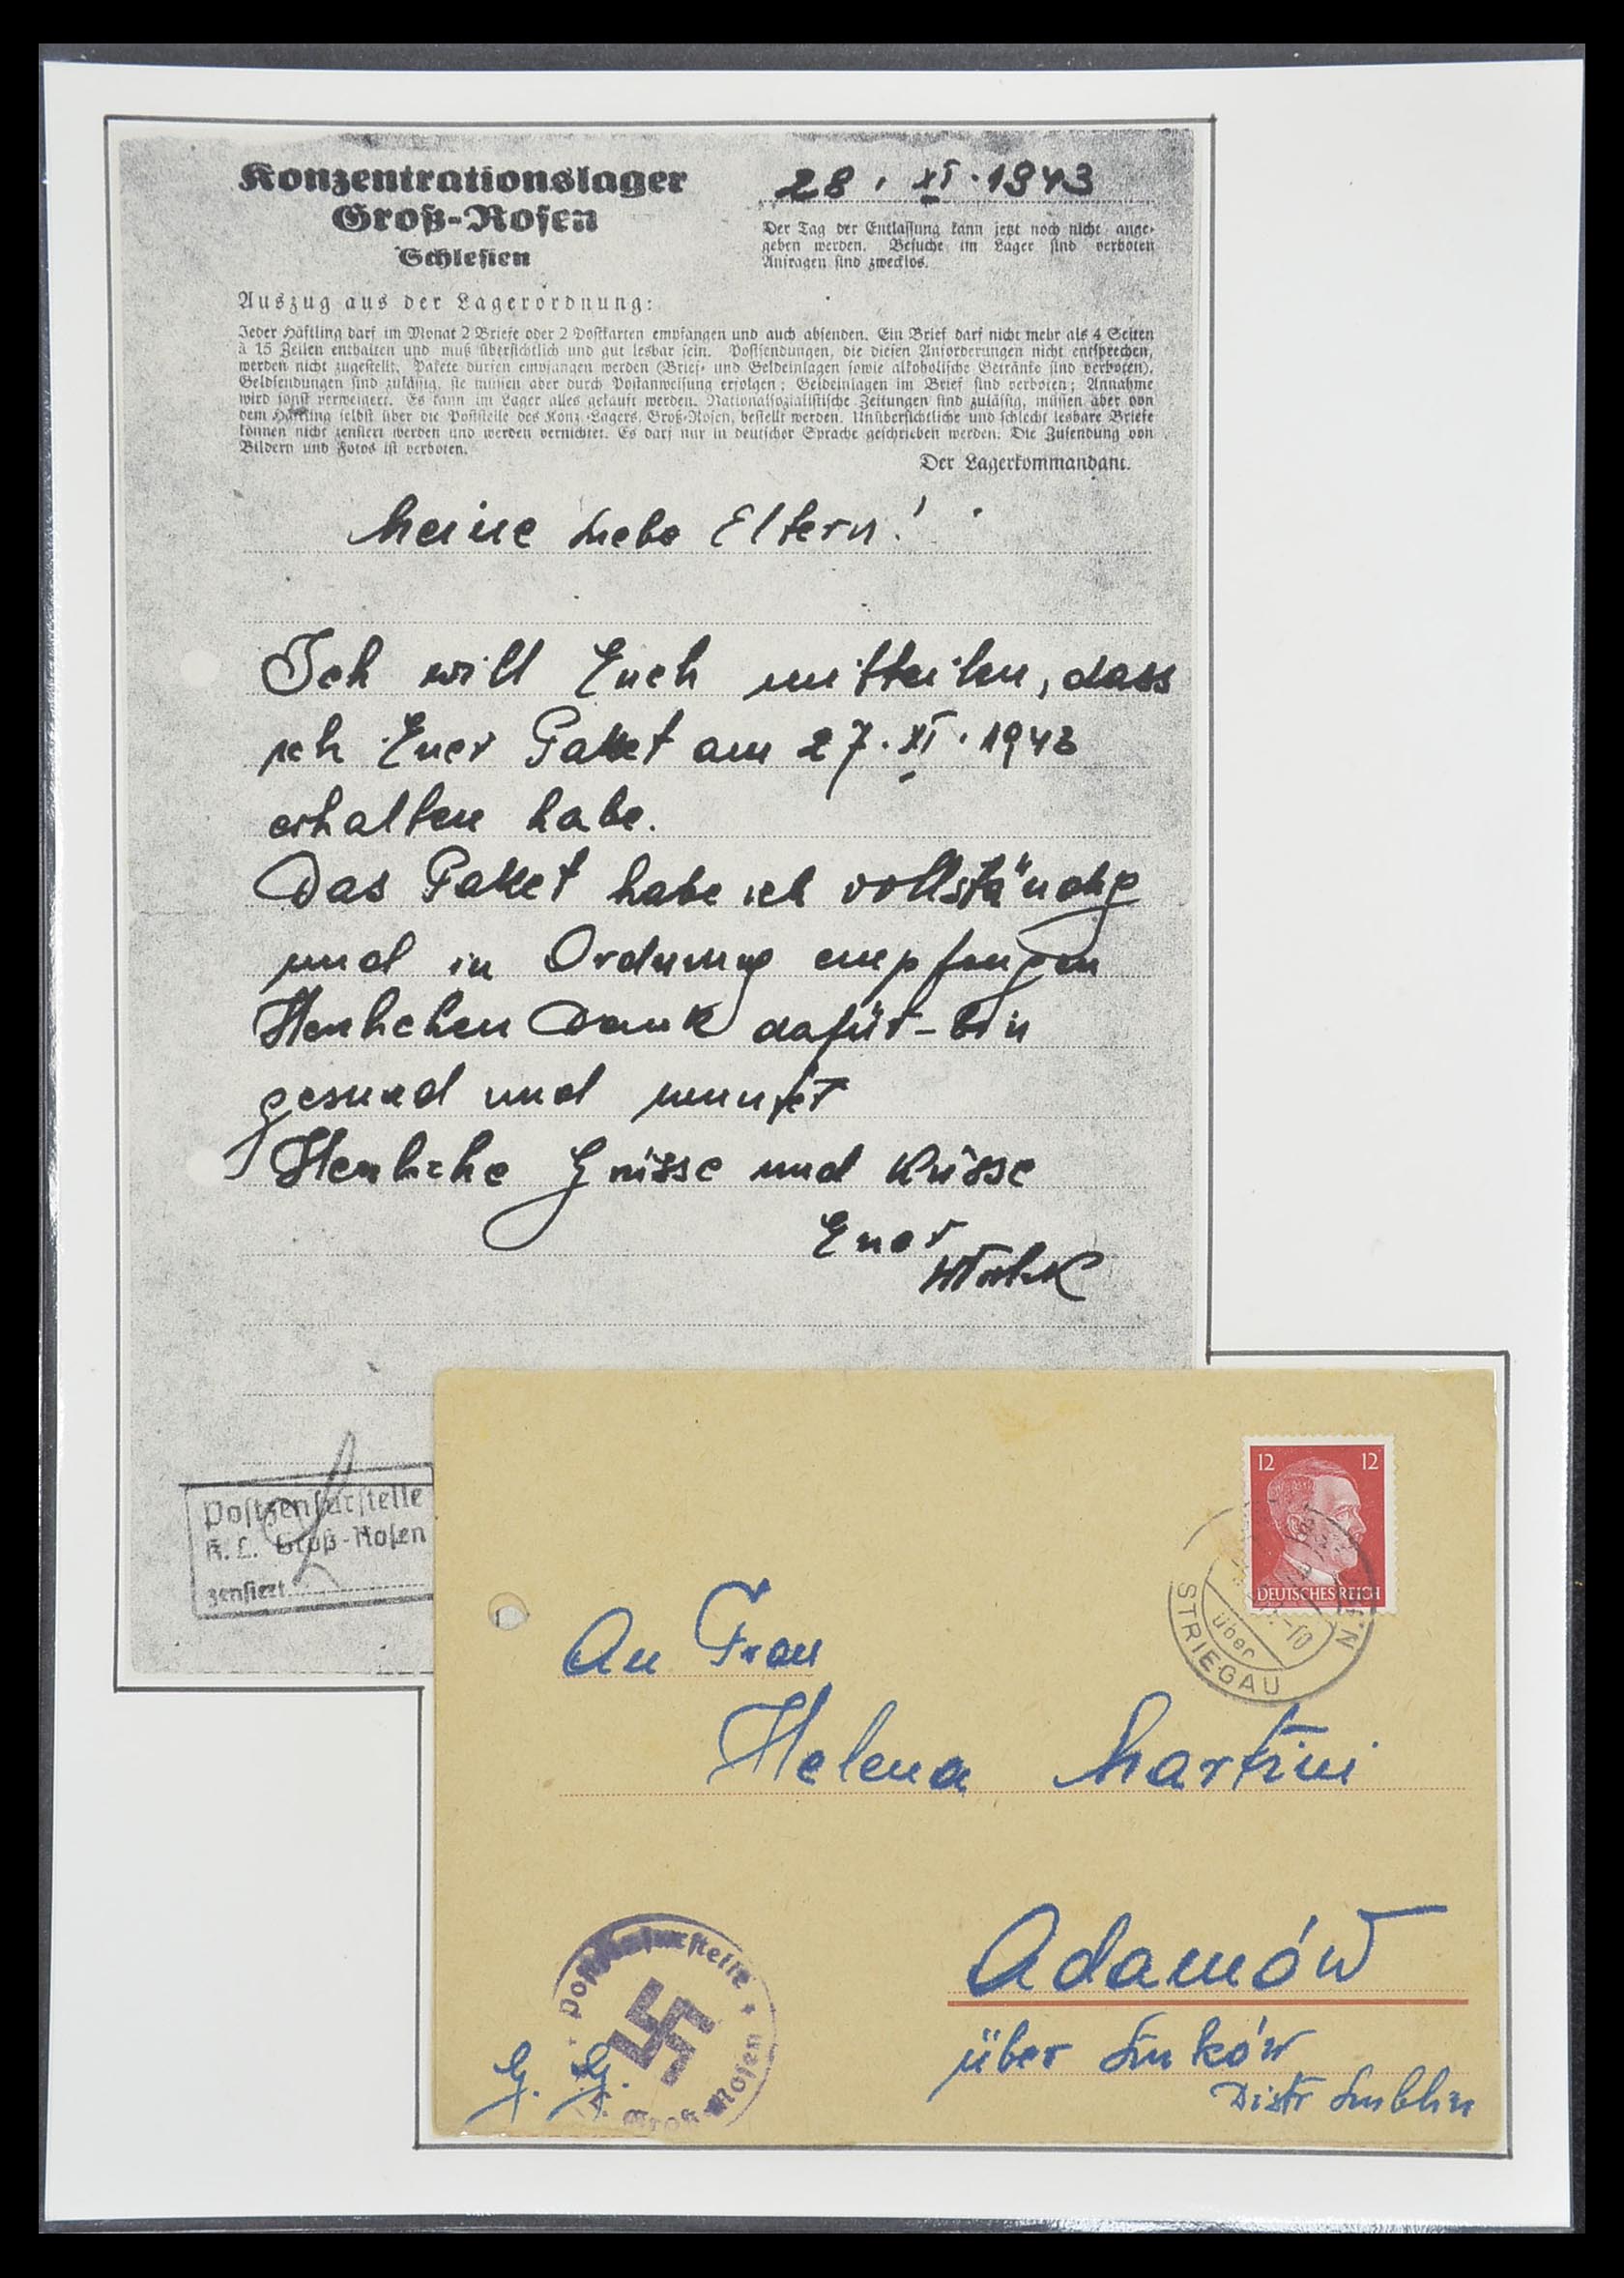 Konzentrationslager
Groß-Rosen
Schlesien
28. XI. 1943
Der Tag der Entlassung kann jetzt noch nicht ange-
geben werden. Besuche im Lager sind verboten
Anfragen sind zwecklos.
Auszug aus der Lagerordnung:
Jeder Häftling darf im Monat 2 Briefe oder 2 Postkarten empfangen und auch absenden. Ein Brief darf nicht mehr als 4 Seiten
à 15 Zeilen enthalten und muß übersichtlich und gut lesbar sein. Postsendungen, die diesen Anforderungen nicht entsprechen,
werden nicht zugestellt. Pakete dürfen empfangen werden (Brief- und Geldeinlagen sowie alkoholische Getränke sind verboten).
Geldsendungen sind zulässig, sie müssen aber durch Postanweisung erfolgen; Geldeinlagen im Brief sind verboten; Annahme
wird sonst verweigert. Es kann im Lager alles gekauft werden. Nationalsozialistische Zeitungen sind zulässig, müssen aber von
dem Häftling selbst über die Poststelle des Konz.-Lagers, Groß-Rosen, bestellt werden. Unübersichtliche und schlecht lesbare Briefe
können nicht zensiert werden und werden vernichtet. Es darf nur in deutscher Sprache geschrieben werden. Die Zusendung von
Bildern und Fotos ist verboten.
Der Lagerkommandant.
Meine Liebe Eltern!
Ich will Euch mitteilen, dass
ich Euer Paket am 27. XI. 1943
erhalten habe.
Das Paket habe ich vollständig
und in Ordnung empfangen
Herzlichen Dank dafür - bin
gesund und munter
Herzliche Grüsse und Küsse
Euer
Postzensurstelle
K. L. Groß-Rosen
zensiert
12 12
DEUTSCHES REICH
über
STRIEGAU
An Frau
Helena Martini
Adamów
über Luków
Distr Lublin
G. G.
Postzensurstelle
Groß-Rosen